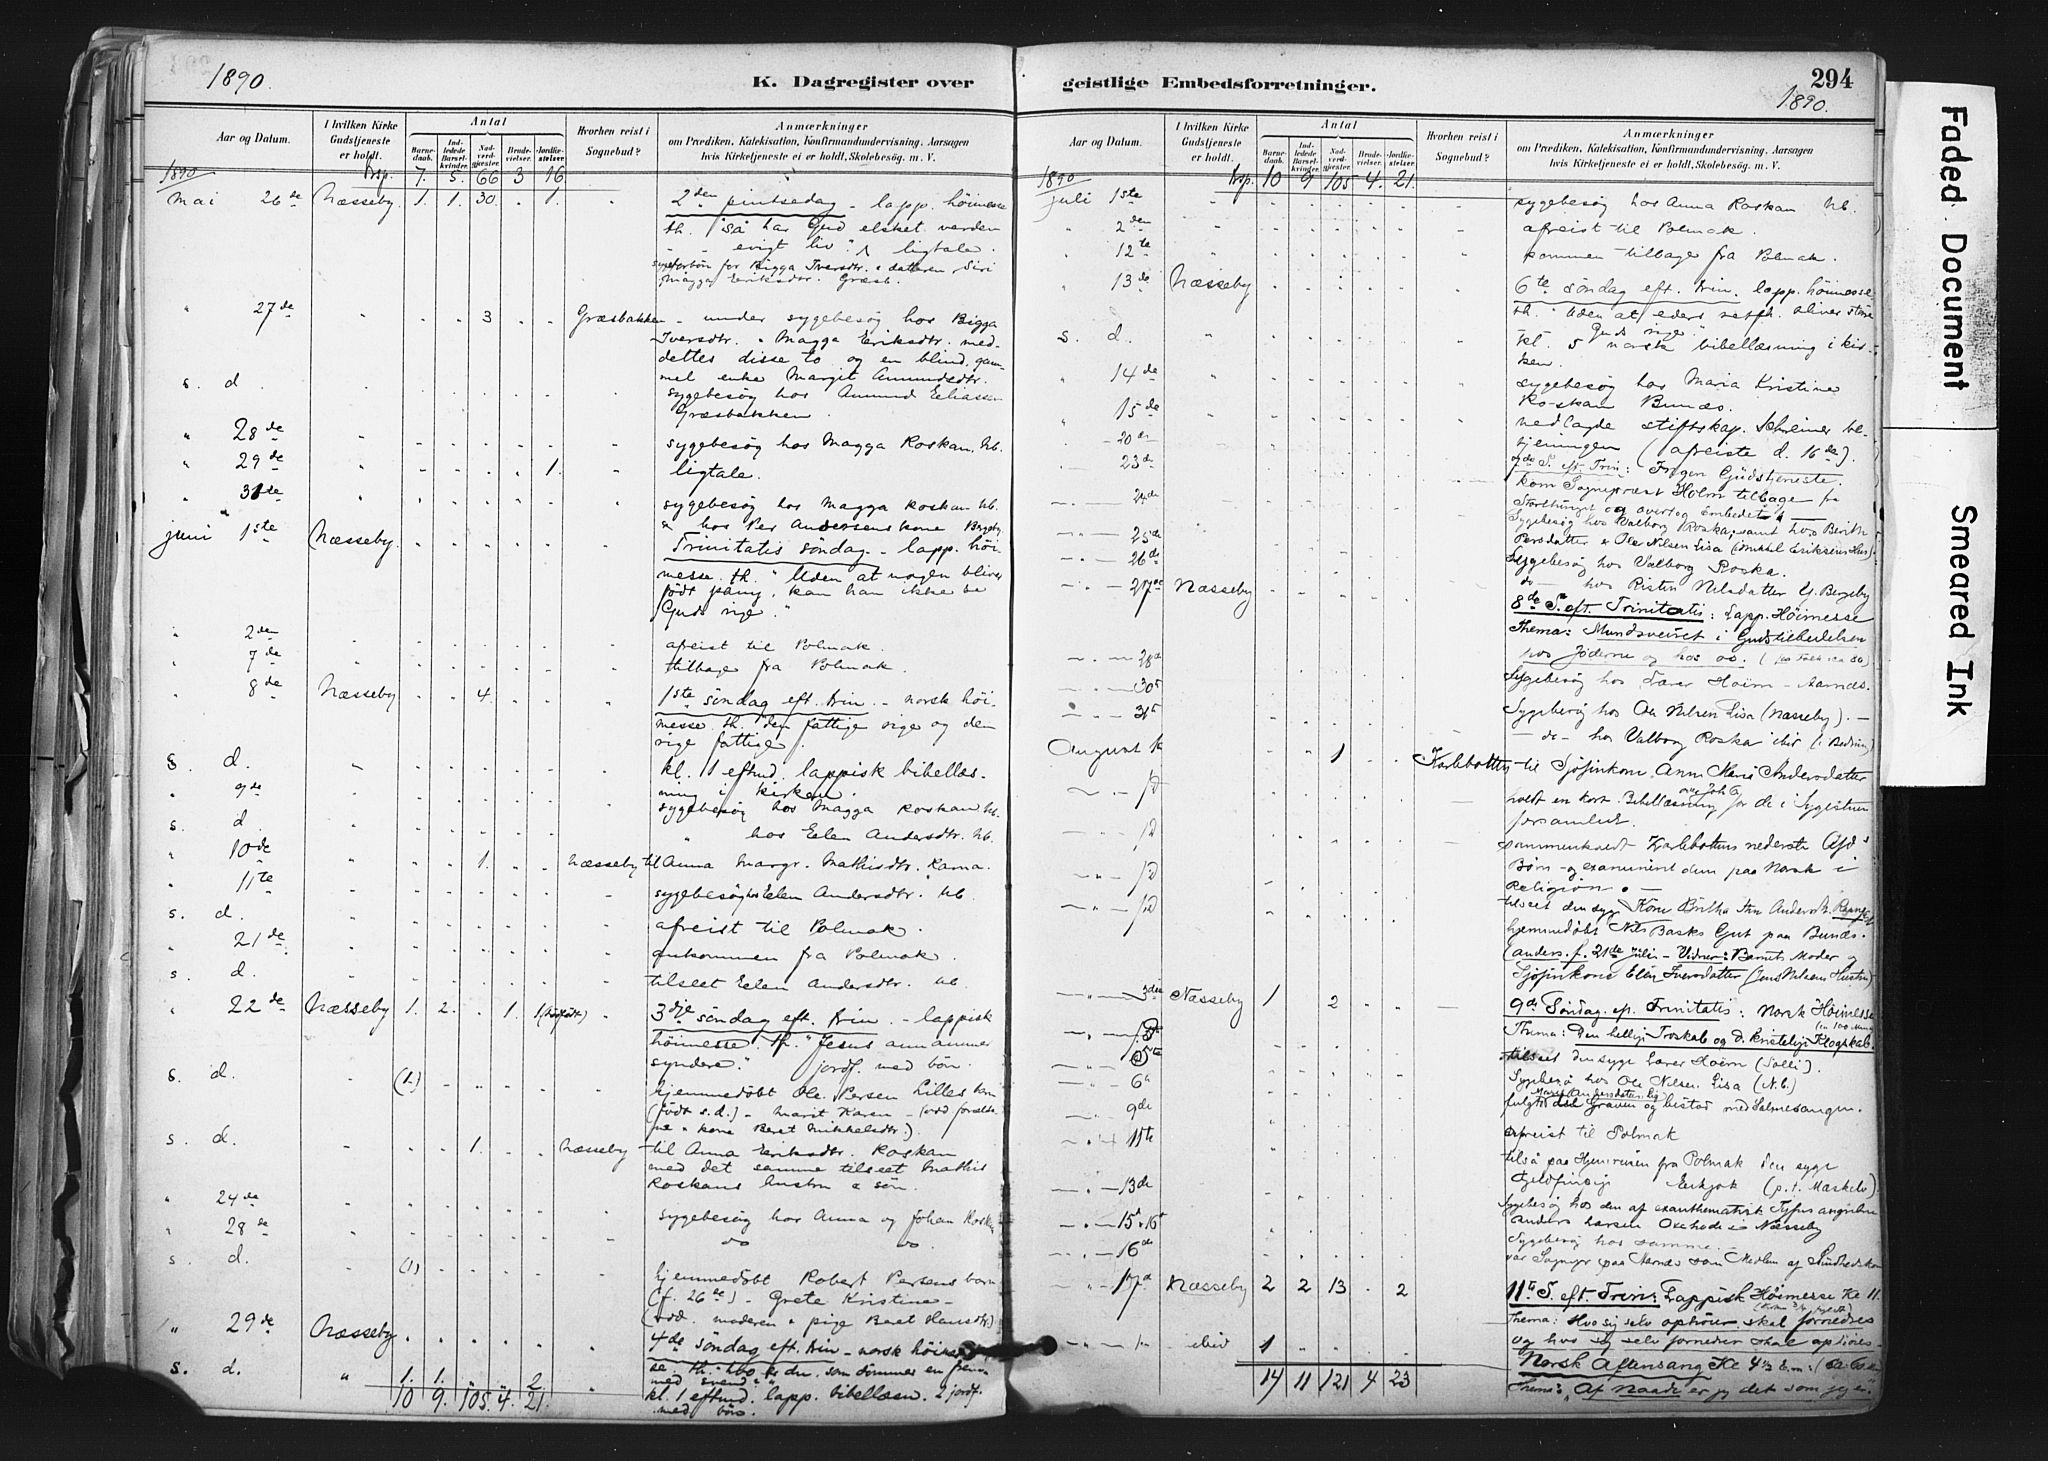 1890.
K. Dagregister over
Aar og Datum.
I hvilken Kirke Gudstjeneste er holdt.
Antal
Barnedaab.
Indledede Barselkvinder.
Nadverdgjester.
Brudevielser.
Jordfæstelser.
Hvorhen reist i Sognebud?
Anmærkninger
om Prædiken, Katekisation, Konfirmandundervisning, Aarsagen
hvis Kirketjeneste ei er holdt, Skolebesøg. m. V.
1890 Trsp. 7. 5. 66 3 16.
Mai 26de Næsseby. 1. 1. 30. 1. 2den pintsedag - lapp. høimesse
th. "Så har Gud elsket verden
evigt liv". ligtale.
for Bigga Iversdtr. & datteren Siri
Magga Eriksdtr. Græsb.
" 27de 3 Græsbakken - under sygebesøg hos Bigga
Iversdtr. & Magga Eriksdtr. med-
deltes disse to og en blind, gam-
mel enke Margit Amundsdtr.
s. d. sygebesøg hos Amund Eliassen
Græsbakken.
" 28de sygebesøg hos Magga Roskan. Nb.
" 29de 1. ligtale.
" 31te sygebesøg hos Magga Roskan Nb.
& hos Per Andersens kone Bergeby
juni 1ste Næsseby. Trinitatis søndag - lapp. høi-
messe. th. "Uden at nogen bliver
født påny, kan han ikke se
Guds rige."
" 2den afreist til Polmak.
" 7de tilbage fra Polmak.
" 8de Næsseby 4. 1ste søndag eft. Trin. - norsk høi-
messe th. "den fattige rige og den
rige fattige.
s. d. kl. 1 eftmd. lappisk bibellæs-
ning i kirken.
" 9de sygebesøg hos Magga Roskan Nb.
s. d. " hos Elen Andersdtr. Nb.
" 10de 1. Næsseby til Anna Margr. Mathisdtr. Kama.
" 11te sygebesøg hos Elen Andersdtr. Nb.
s. d. afreist til Polmak.
" 21de ankommen fra Polmak.
s. d. tilseet Elen Andersdtr. Nb.
" 22de Næsseby 1. 2. 1. 1 3dje søndag eft. Trin. - lappisk
høimesse. th. "Jesus annammer
syndere." jordf. med bön.
s. d. (1.) hjemmedøbt Ole Persen Lilles barn
(født s. d.) - Marit Karen -
& kone Beret Mikkelsdtr.).
s. d. 1. Næsseby til Anna Eriksdtr. Roskan
med det samme tilseet Mathis
Roskans hustru & søn.
" 24de sygebesøg hos Anna og Johan Roskan
" 28de do do.
s. d. (1) hjemmedøbt Robert Persens barn
(f. 26de) - Grete Kristine -
(vdd. moderen & pige Beret Hansdtr.)
" 29de Næsseby 4de søndag eft. Trin - norsk høimes-
se. th. "du, som dømmer en frem-
med svend."
s. d. " 1. 1. 2 kl. 1 eftmd. lapp. bibellæsn. 2 jordf.
med bön.
10 9. 105. 4. 21.
geistlige Embedsforretninger.
294
1890.
Aar og Datum.
I hvilken Kirke Gudstjeneste er holdt.
Antal
Barnedaab.
Indledede Barselkvinder.
Nadverdgjester.
Brudevielser.
Jordfæstelser.
Hvorhen reist i Sognebud?
Anmærkninger
om Prædiken, Katekisation, Konfirmandundervisning, Aarsagen
hvis Kirketjeneste ei er holdt, Skolebesøg. m. V.
1890 Trsp. 10 9 105. 4. 21.
juli 1ste sygebesøg hos Anna Roskan Nb.
" 2den afreist til Polmak.
" 12te kommen tilbage fra Polmak.
" 13de Næsseby 6te søndag eft. Trin. lapp. høimesse
th. "Uden at eders retfh. bliver større
Guds rige"
s. d. kl. 5 norsk bibellæsning i kir-
ken.
" 14de sygebesøg hos Maria Kristine
Roskan Bunæs.
" 15de nedlagde stiftskap. Schreiner be-
tjeningen (afreiste d. 16de).
20de 7de S. eft. Trin: Ingen Gudstjeneste.
23de kom Sogneprest Holm tilbage fra
Storthinget og overtog Embedet.
24de Sygebesøg hos Valborg Roska, samt hos Berith
Persdatter & Ole Nilsen Lisa (Mikkel Eriksens Hus).
25de Sygebesøg hos Valborg Roska.
26de do - hos Kistin Nilsdatter Bergeby
27de Næsseby 8de S. eft. Trinitatis: Lapp. Høimesse
Thema: Mundsveiret i Gudstilbedelsen
hos Jøderne og hos os.
28de Sygebesøg hos Lærer Holm - Aarnæs.
30te Sygebesøg hos Ole Nilsen Lisa (Næsseby). -
31te - do - hos Valborg Roska
August 1ste 1 Karlebotten til Sjøfinkone Ann Marie Andersdatter
1ste holdt en kort Bibellæsning for de i Sygestuen
forsamlede.
1ste sammenkaldt Karlebottens nederste
Børn - og examineret dem paa Norsk i
Religion. -
1ste tilseet den syge Kone Britha
1ste hjemmedøbt Nils Basks Gut paa Bunæs.
(Anders. f. 21de Juli - Vidner: Barnets Moder og
Sjøfinkone Elen Iversdatter (Jens Nilsens Hustru)
3die Næsseby 1 2 9de Søndag. ef. Trinitatis: Norsk Høimesse
Thema: Den hellige Troskab og d. kristelige Klogskab.
tilseet den syge Lærer Holm
5te Sygebesøg hos Ole Nilsen Lisa (N.b.)
6te fulgte til Graven og bistod med Salmesangen.
9de afreist til Polmak
11te tilså paa Hjemreisen fra Polmak den syge
(p.t. Maskelv).
13de Sygebesøg hos den af exanthematisk Tyfus angrebne
Anders Larsen i Næsseby
15de & 16de Sygebesøg hos samme. -
16de var Sognepr. paa Aarnæs som Medlem af Sundhedskom
17de Næsseby 2 2 13 2 11te S. eft. Trin: Lappisk Høimesse Kl 11.
Thema: Hvo sig selv ophøier skal fornedres
og hvo sig selv fornedrer skal ophøies -
ibid 1 Norsk Aftensang Kl 4½ E.m:
14 11 121 4 23 Thema: "Af Naade er jeg det som jeg er."
Faded Document
Smeared Ink